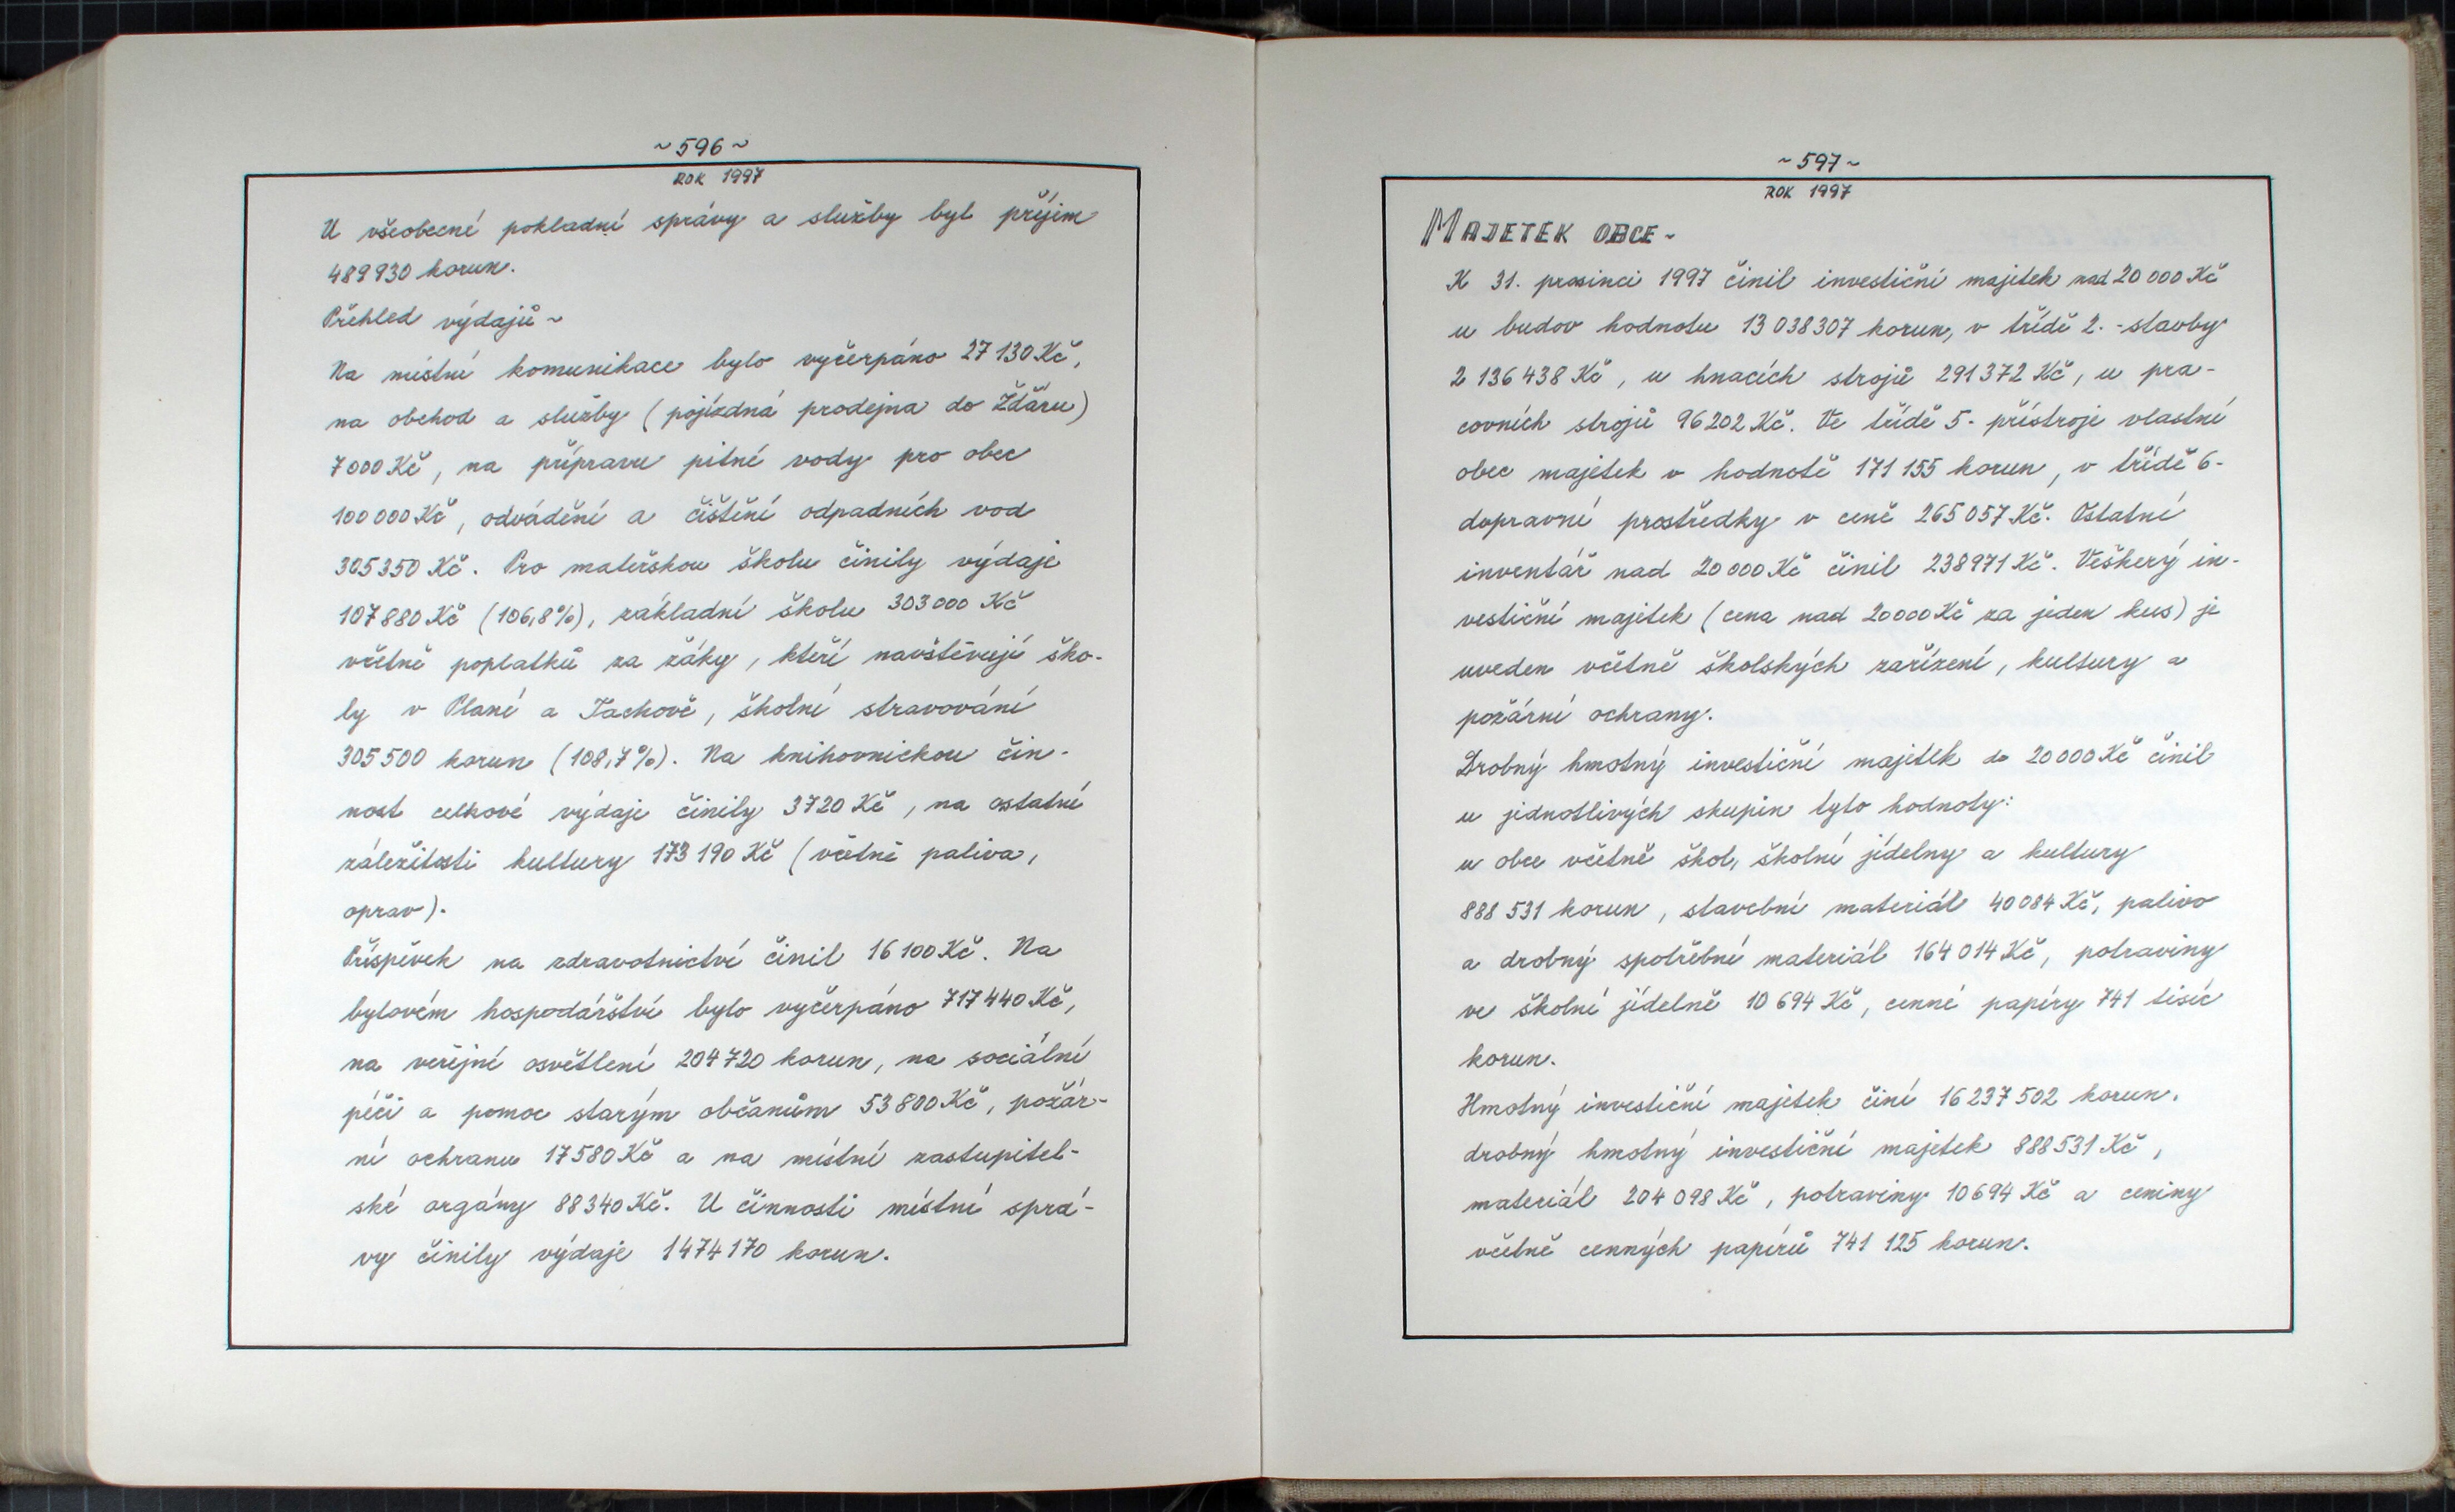 ~ 596 ~
ROK 1997
U všeobecné pokladní správy a služby byl příjem
489930 korun.
Přehled výdajů ~
Na místní komunikace bylo vyčerpáno 27 130 Kč,
na obchod a služby (pojízdná prodejna do Žďáru)
7 000 Kč, na přípravu pitné vody pro obec
100 000 Kč, odvádění a čištění odpadních vod
305 350 Kč. Pro mateřskou školu činily výdaje
107 880 Kč (106,8%), základní školu 303 000 Kč
včetně poplatků za žáky, kteří navštěvují ško-
ly v Plané a Tachově, školní stravování
305 500 korun (108,7%). Na knihovnickou čin-
nost celkové výdaje činily 3720 Kč, na ostatní
záležitosti kultury 173 190 Kč (včetně paliva,
oprav).
Příspěvek na zdravotnictví činil 16 100 Kč. Na
bytovém hospodářství bylo vyčerpáno 717 440 Kč,
na veřejné osvětlení 204 720 korun, na sociální
péči a pomoc starým občanům 53 800 Kč, požár-
ní ochranu 17 580 Kč a na místní zastupitel-
ské orgány 88 340 Kč. U činnosti místní sprá-
vy činily výdaje 1 474 170 korun.
~ 597 ~
ROK 1997
MAJETEK OBCE ~
K 31. prosinci 1997 činil investiční majetek nad 20 000 Kč
u budov hodnotu 13 038 307 korun, v třídě 2. - stavby
2 136 438 Kč, u hnacích strojů 291 372 Kč, u pra-
covních strojů 96 202 Kč. Ve třídě 5 - přístroje vlastní
obec majetek v hodnotě 171 155 korun, v třídě 6 -
dopravní prostředky v ceně 265 057 Kč. Ostatní
inventář nad 20 000 Kč činil 238 971 Kč. Veškerý in-
vestiční majetek (cena nad 20 000 Kč za jeden kus) je
uveden včetně školských zařízení, kultury a
požární ochrany.
Drobný hmotný investiční majetek do 20 000 Kč činil
u jednotlivých skupin tyto hodnoty:
u obce včetně škol, školní jídelny a kultury
888 531 korun, stavební materiál 40 084 Kč, palivo
a drobný spotřební materiál 164 014 Kč, potraviny
ve školní jídelně 10 694 Kč, cenné papíry 741 tisíc
korun.
Hmotný investiční majetek činí 16 237 502 korun,
drobný hmotný investiční majetek 888 531 Kč,
materiál 204 098 Kč, potraviny 10 694 Kč a ceniny
včetně cenných papírů 741 125 korun.